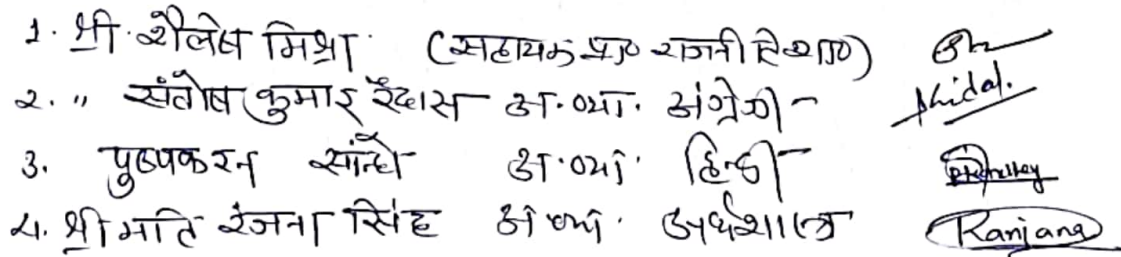 1. श्री शैलेष मिश्रा (सहायक प्रा० राजनीति शा०)
2. " संतोष कुमार रैदास अ.व्या. अंग्रेजी -
3. पुष्पकरन सांन्धे अ.व्यां. हिन्दी -
4. श्रीमति रंजना सिंह अ व्यां. अर्थशास्त्र Ranjana